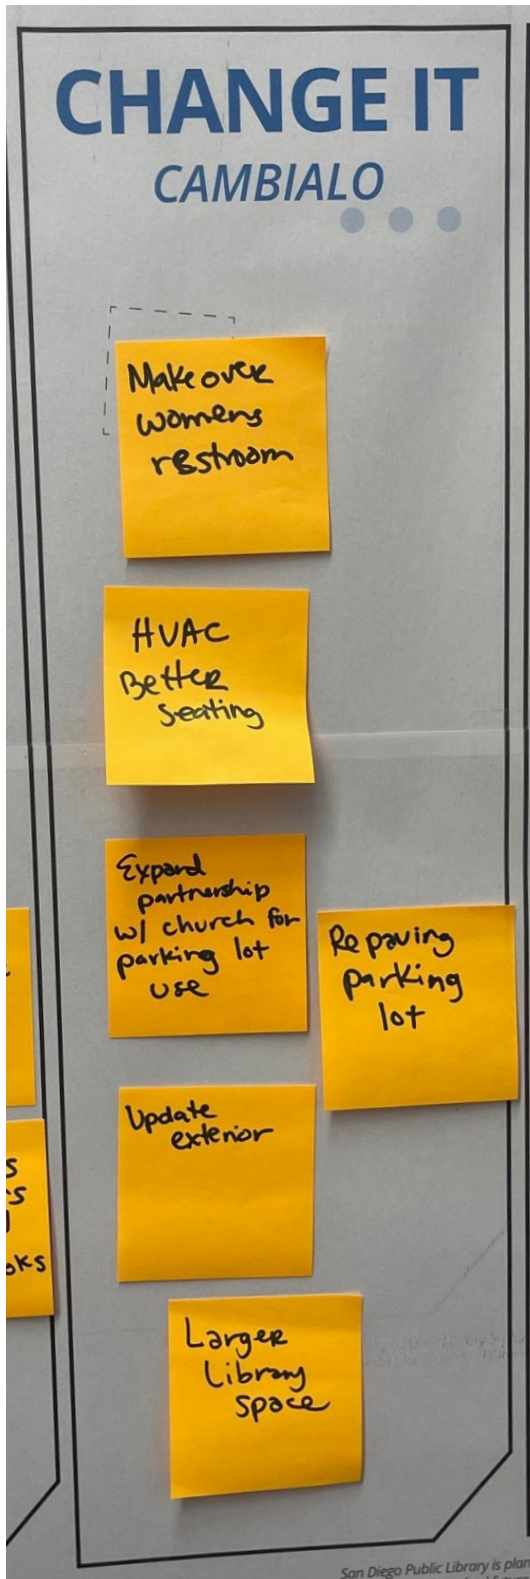 CHANGE IT
CAMBIALO
Makeover
womens
restroom
HVAC
Better
seating
Expand
partnership
w/ church for
parking lot
use
Repaving
parking
lot
Update
exterior
s
s
oks
Larger
Library
space
San Diego Public Library is plan